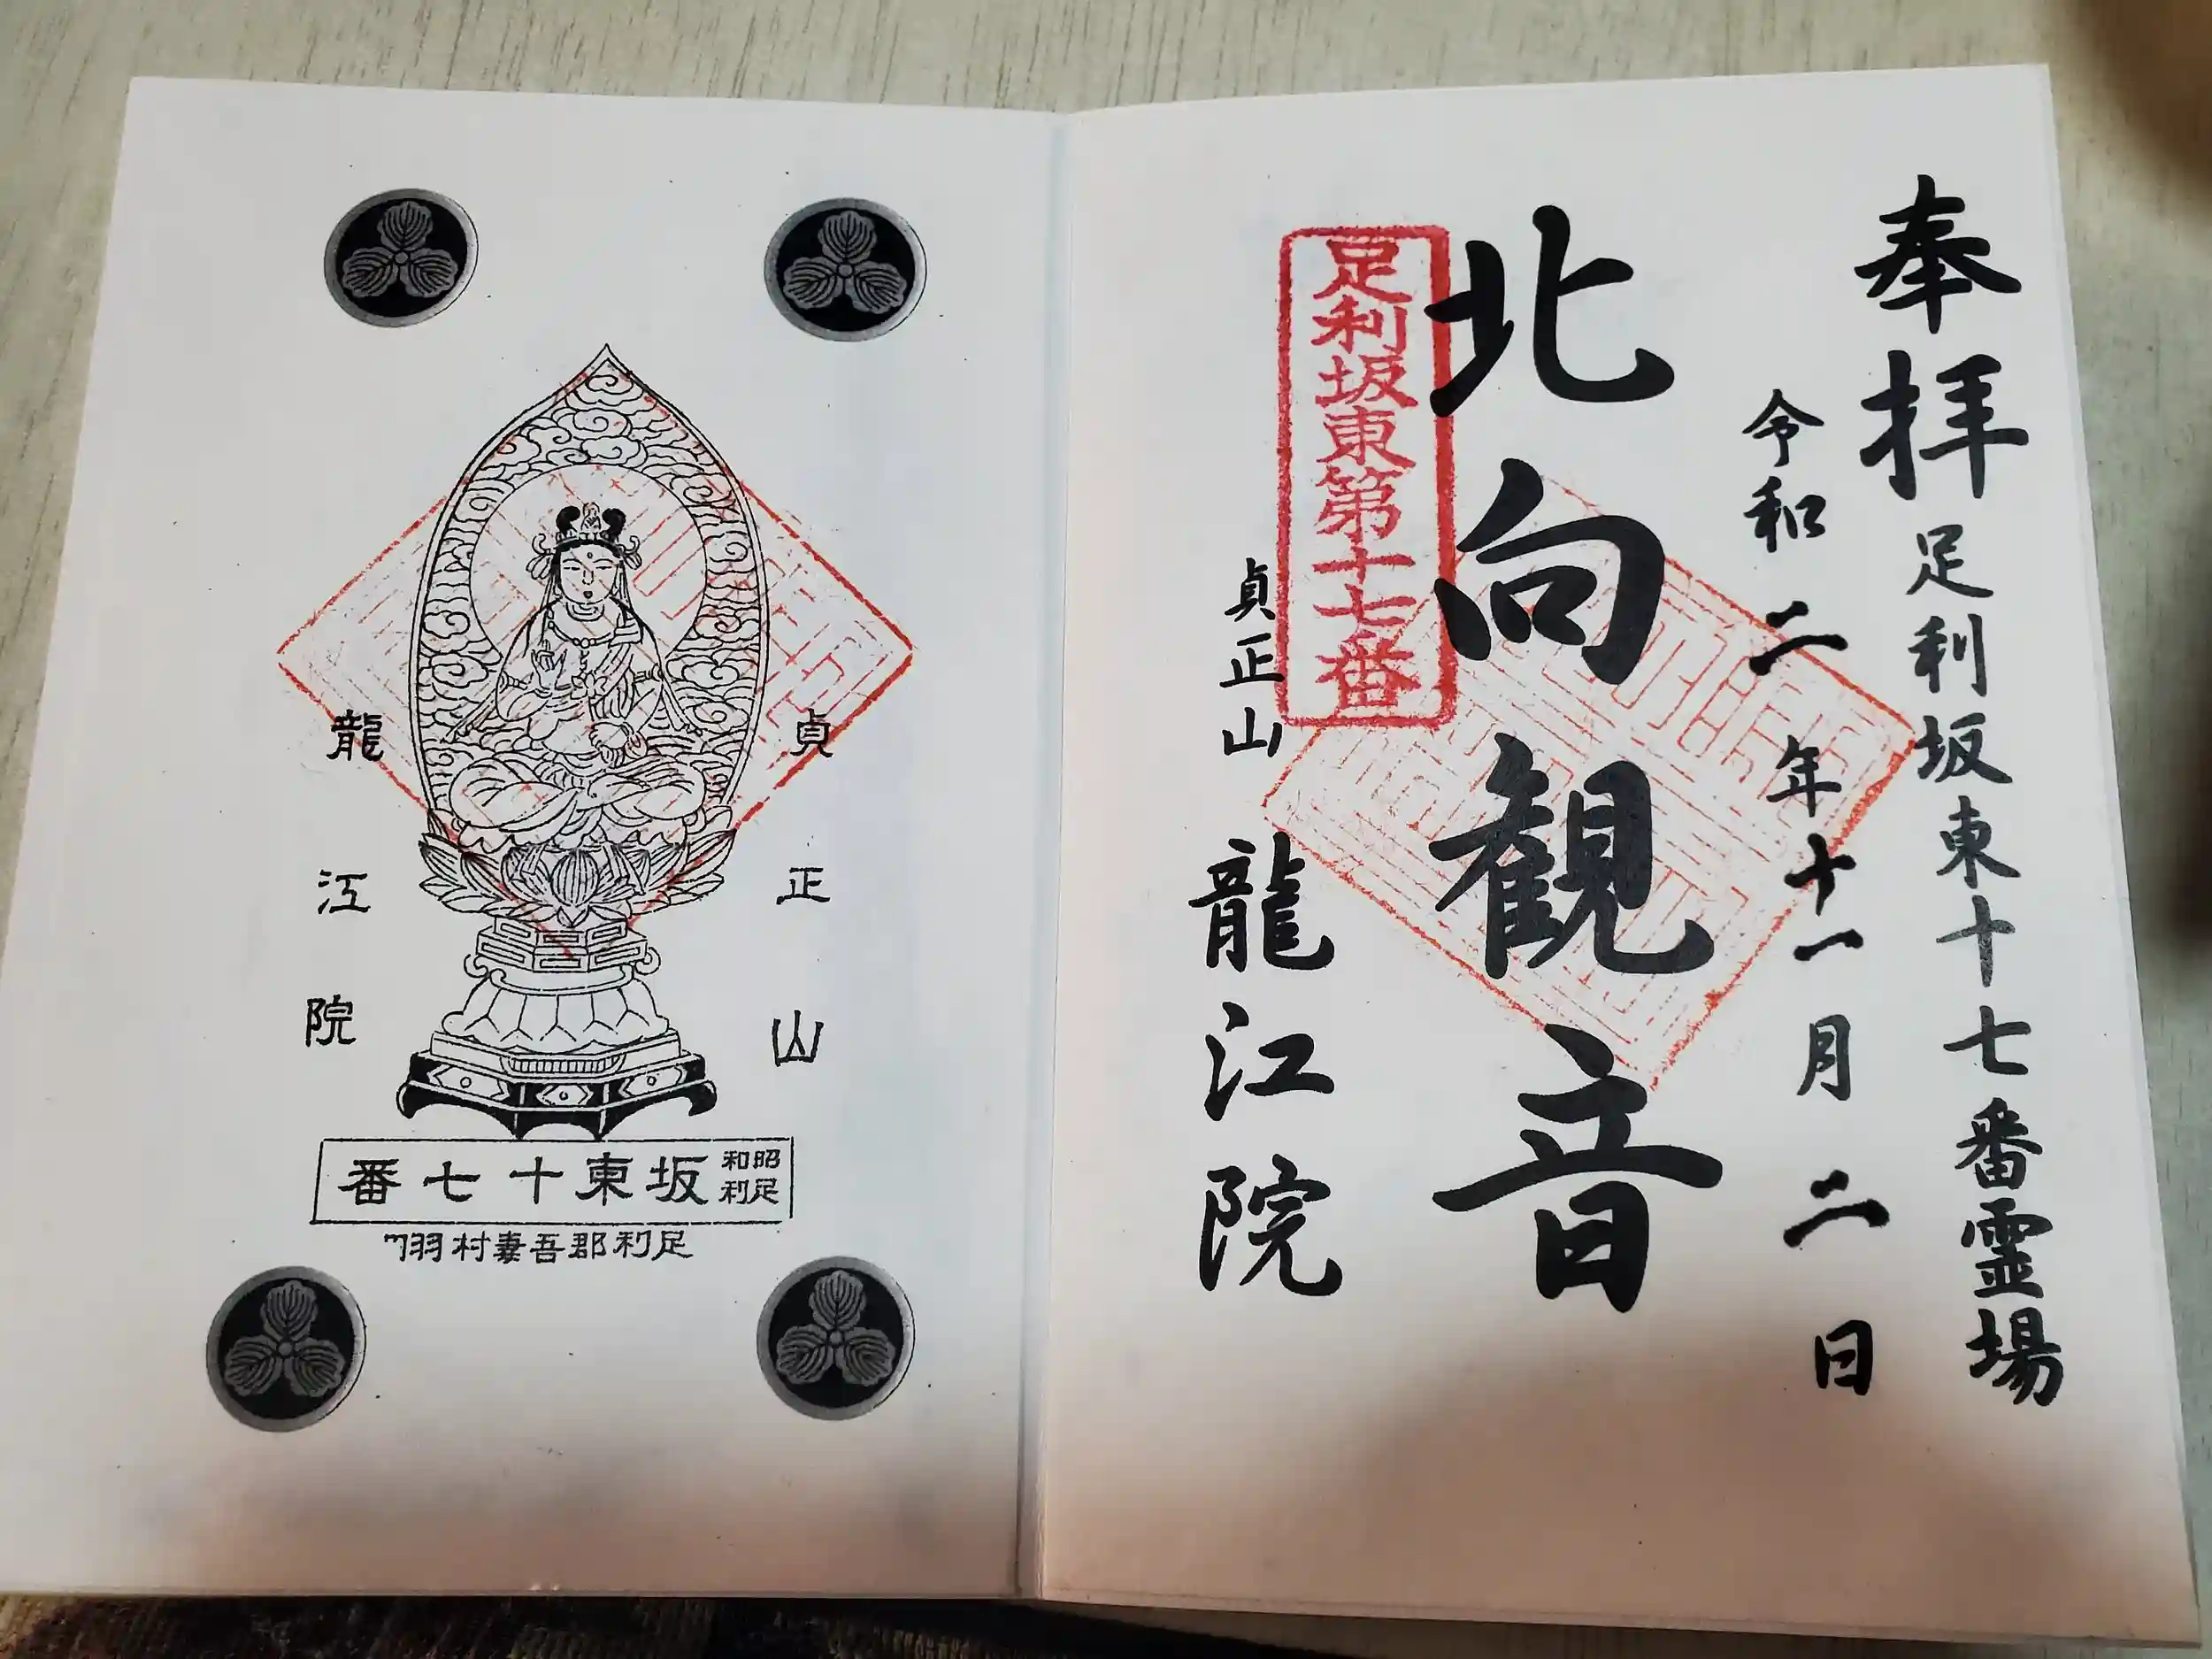 奉拝 足利坂東十七番霊場
令和二年十一月二日
北向観音
足利坂東第十七番
貞正山
龍江院
貞正山
龍江院
昭和
足利
坂東十七番
足利郡吾妻村羽刈